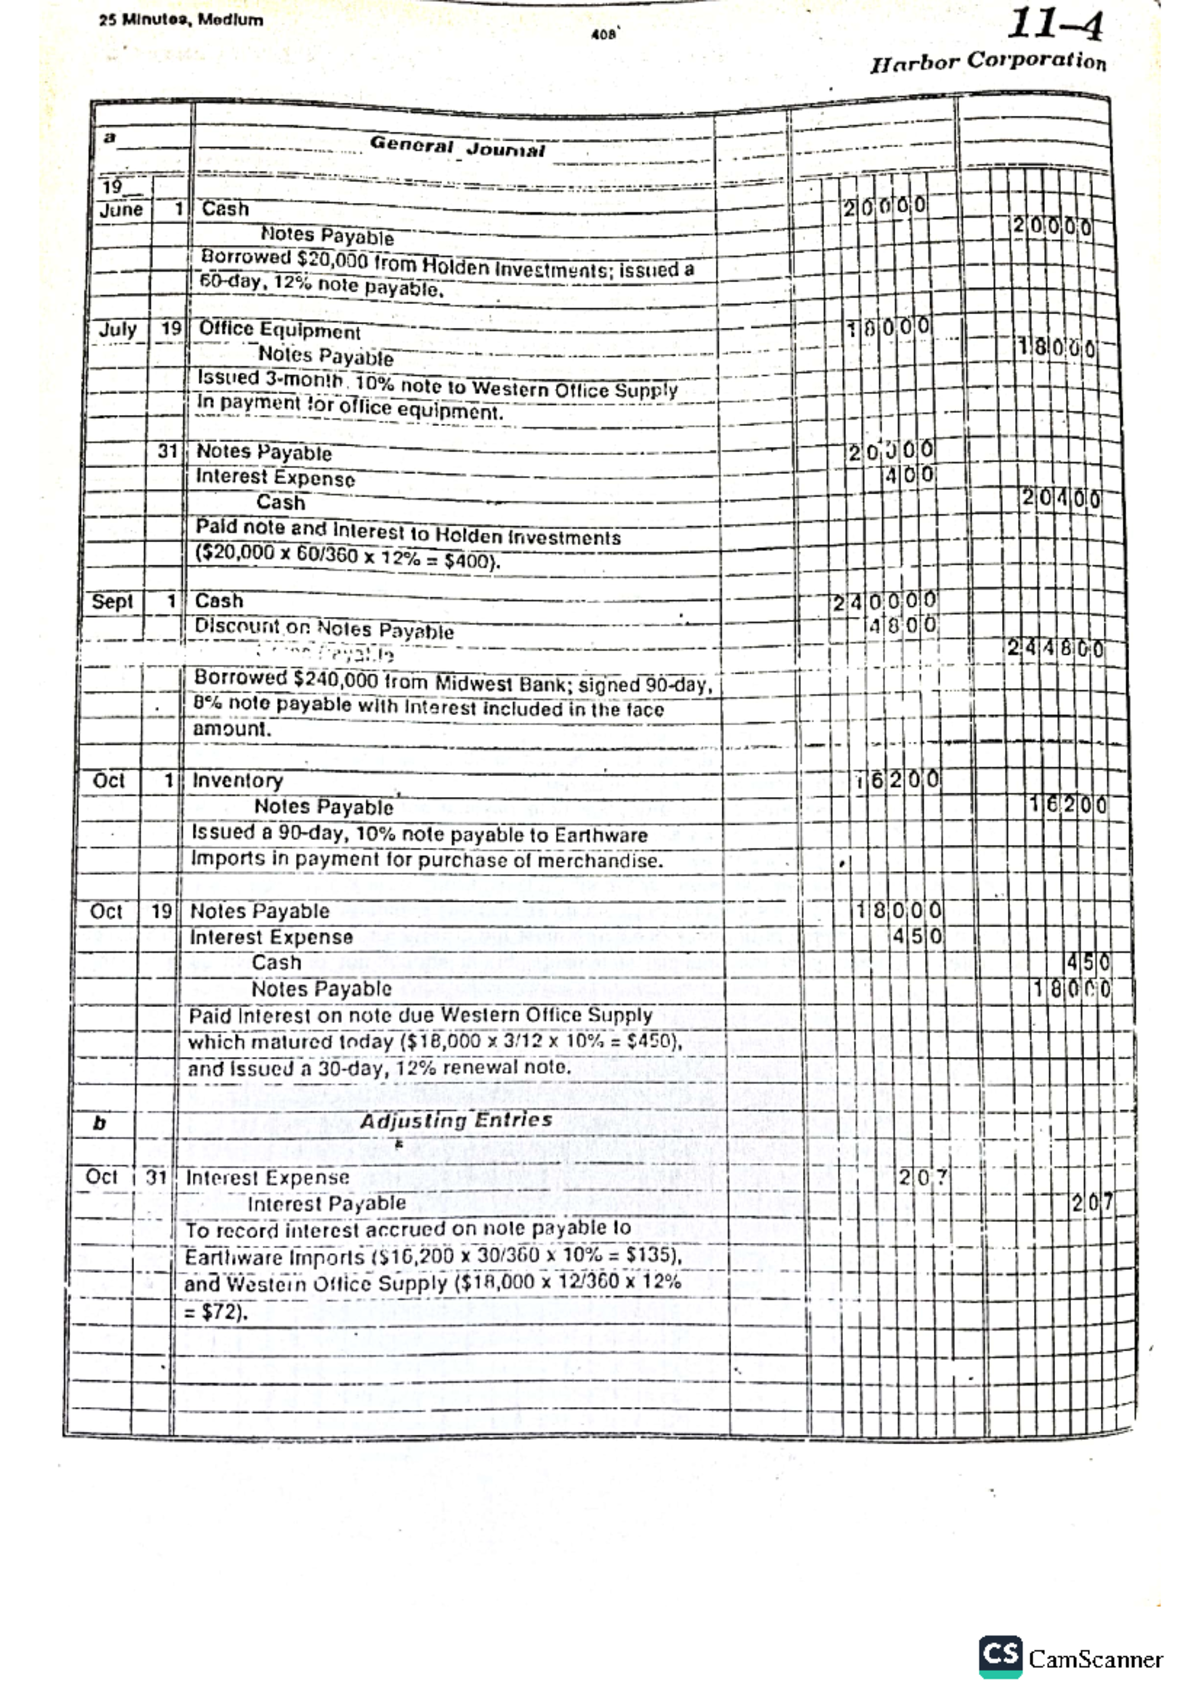 25 Minutes, Medium
408
11–4
Harbor Corporation
a General Journal
19
June 1 Cash 20000
Notes Payable 20000
Borrowed $20,000 from Holden Investments; issued a
60-day, 12% note payable.
July 19 Office Equipment 18000
Notes Payable 18000
Issued 3-month, 10% note to Western Office Supply
In payment for office equipment.
31 Notes Payable 20000
Interest Expense 400
Cash 20400
Paid note and Interest to Holden Investments
($20,000 x 60/360 x 12% = $400).
Sept 1 Cash 240000
Discount on Notes Payable 4800
Payable 244800
Borrowed $240,000 from Midwest Bank; signed 90-day,
8% note payable with Interest included in the face
amount.
Oct 1 Inventory 16200
Notes Payable 16200
Issued a 90-day, 10% note payable to Earthware
Imports in payment for purchase of merchandise.
Oct 19 Notes Payable 18000
Interest Expense 450
Cash 450
Notes Payable 18000
Paid Interest on note due Western Office Supply
which matured today ($18,000 x 3/12 x 10% = $450),
and Issued a 30-day, 12% renewal note.
b Adjusting Entries
Oct 31 Interest Expense 207
Interest Payable 207
To record interest accrued on note payable to
Earthware Imports ($16,200 x 30/360 x 10% = $135),
and Western Office Supply ($18,000 x 12/360 x 12%
= $72).
CS CamScanner